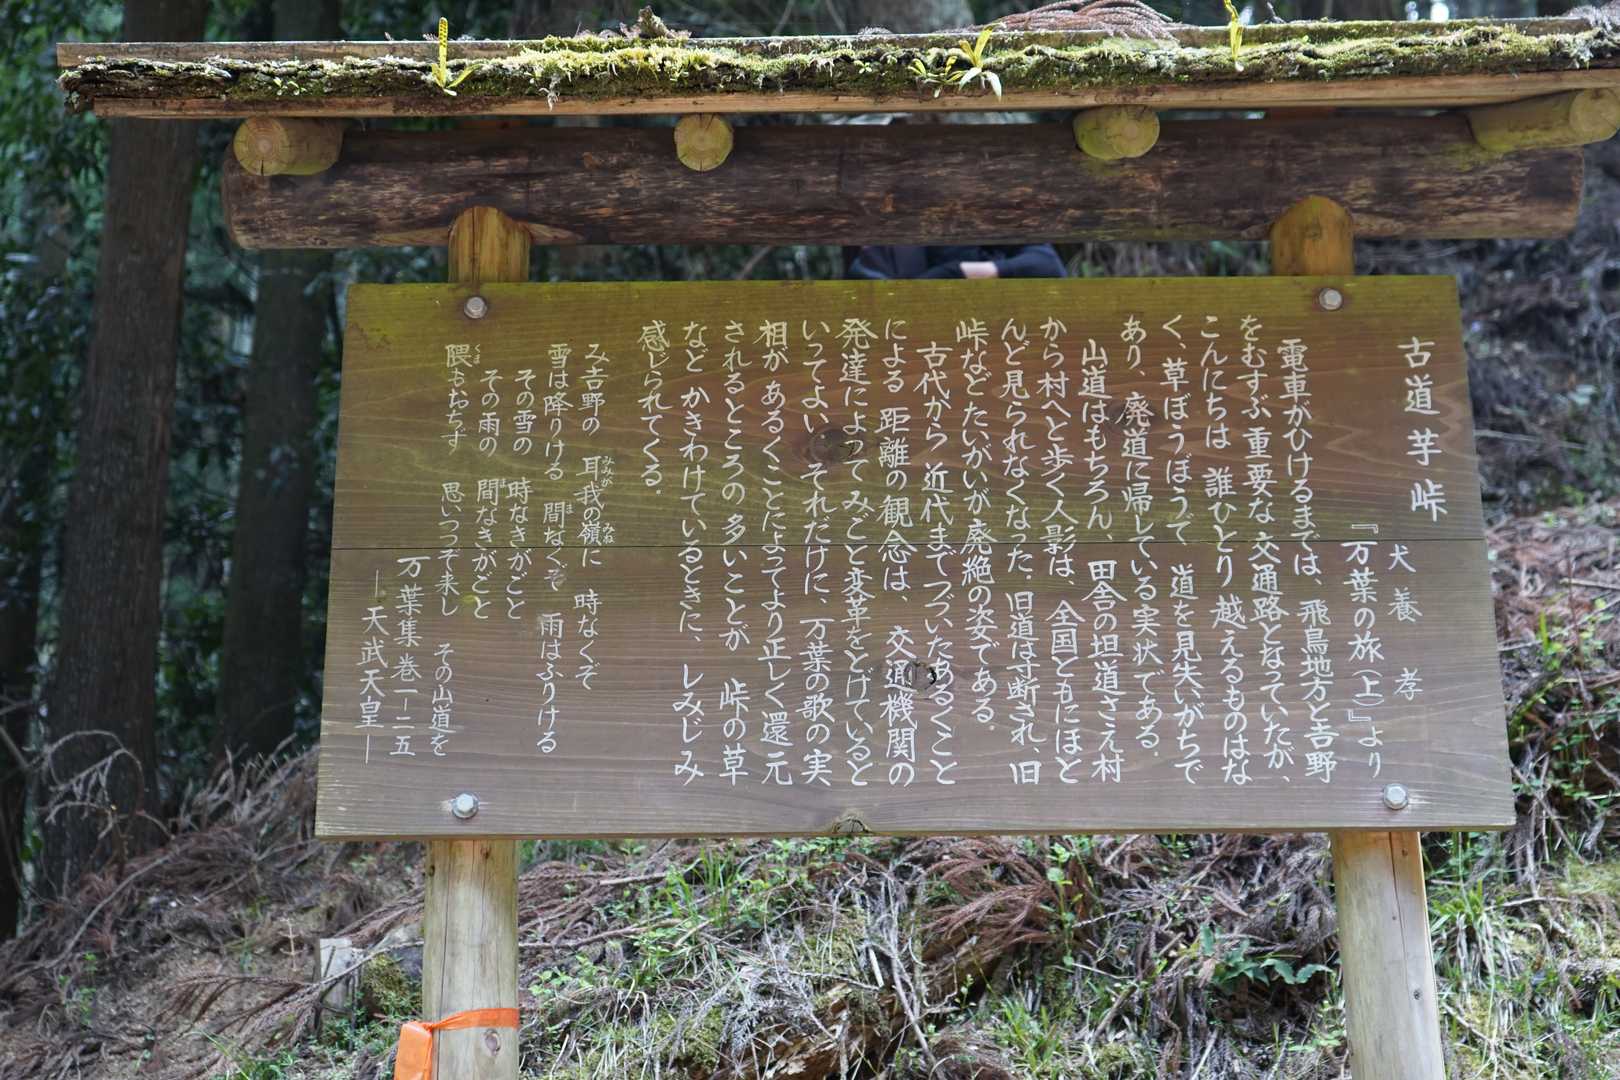 古道芋峠
犬養　孝
『万葉の旅（上）』より
電車がひけるまでは、飛鳥地方と吉野
をむすぶ重要な交通路となっていたが、
こんにちは　誰ひとり越えるものはな
く、草ぼうぼうで、道を見失いがちで
あり、廃道に帰している実状である．
山道はもちろん、田舎の坦道さえ村
から村へと歩く人影は、全国ともにほと
んど見られなくなった．旧道は寸断され、旧
峠などたいがいが廃絶の姿である．
古代から　近代までつづいたあるくこと
による　距離の観念は、　交通機関の
発達によってみごと変革をとげていると
いってよい、それだけに、万葉の歌の実
相が　あるくことによってより正しく還元
されるところの　多いことが　峠の草
など　かきわけているときに、しみじみ
感じられてくる．
み吉野の　耳我の嶺に　時なくぞ
雪は降りける　間なくぞ　雨はふりける
その雪の　時なきがごと
その雨の　間なきがごと
隈もおちず　思いつつぞ来し　その山道を
万葉集　巻一ー二五
—天武天皇—